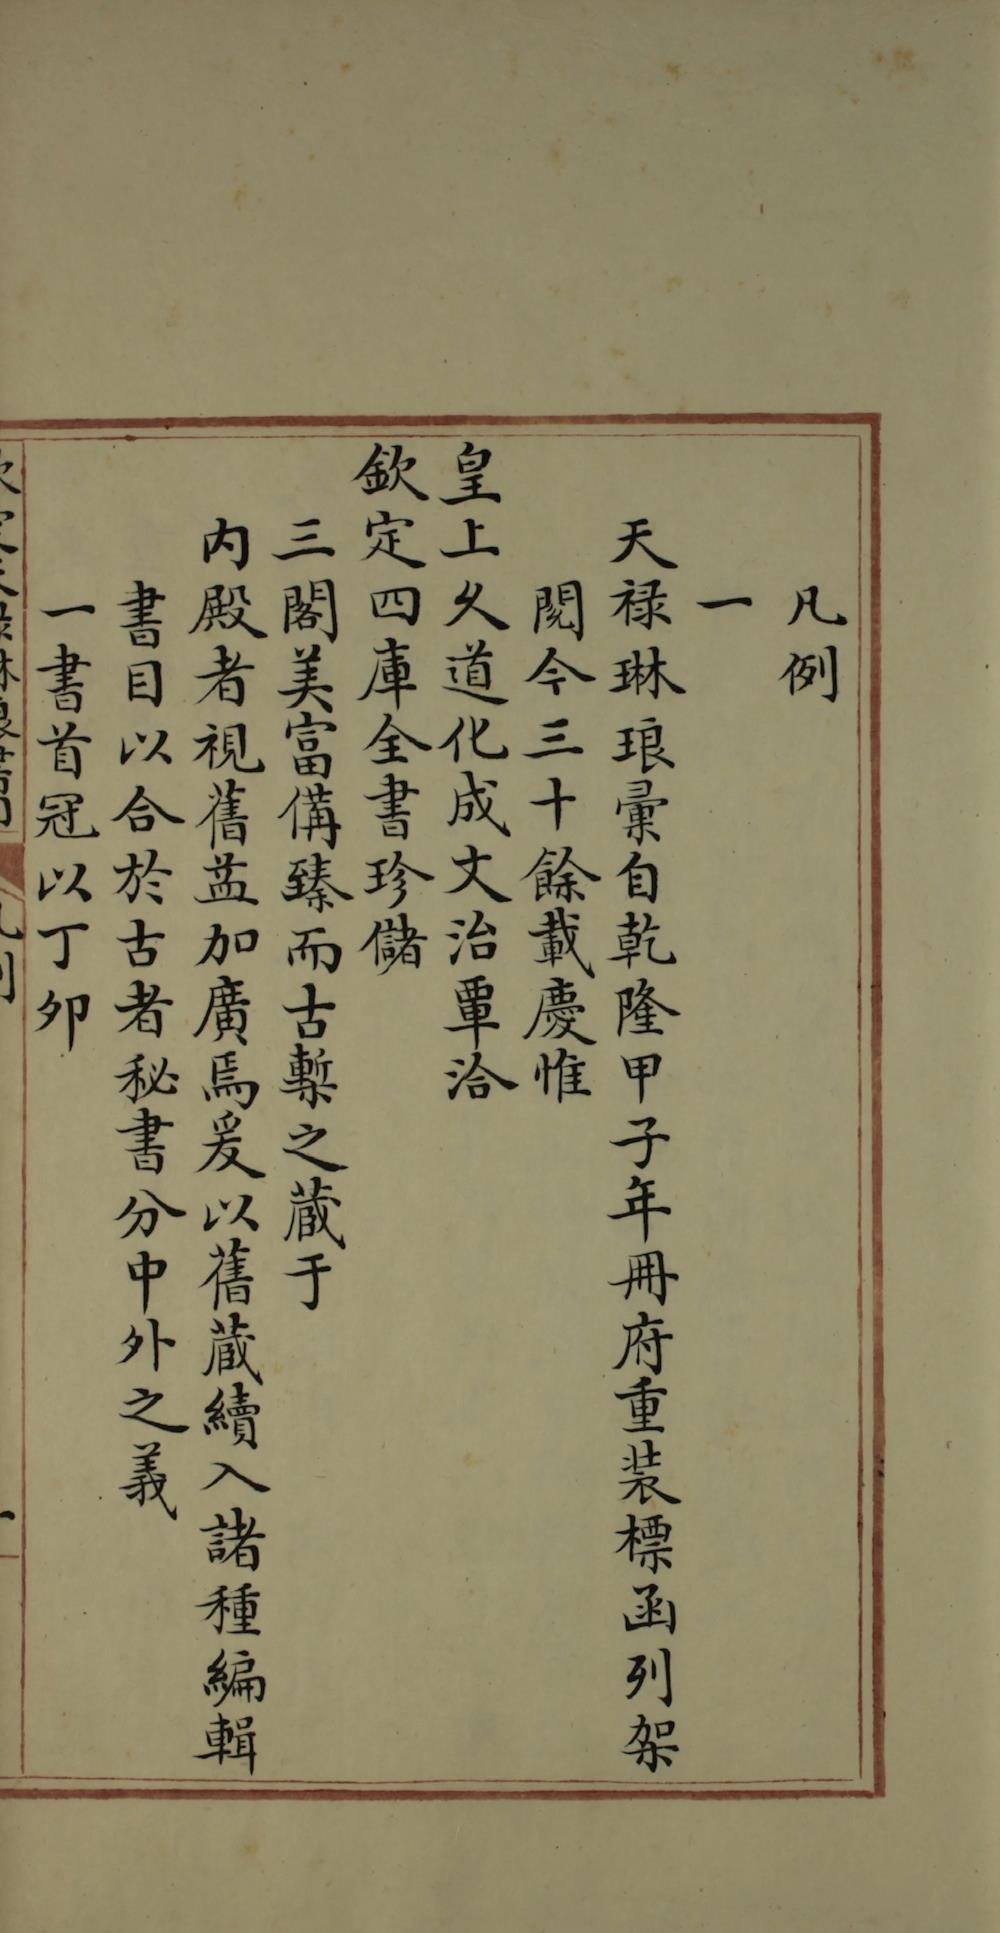 凡例
一
天禄琳琅彚自乾隆甲子年冊府重装標函列架
閱今三十餘載慶惟
皇上久道化成文治覃洽
欽定四庫全書珍儲
三閣美富備臻而古槧之蔵于
内殿者視舊益加廣焉爰以舊蔵續入諸種編輯
書目以合於古者秘書分中外之義
一書首冠以丁卯